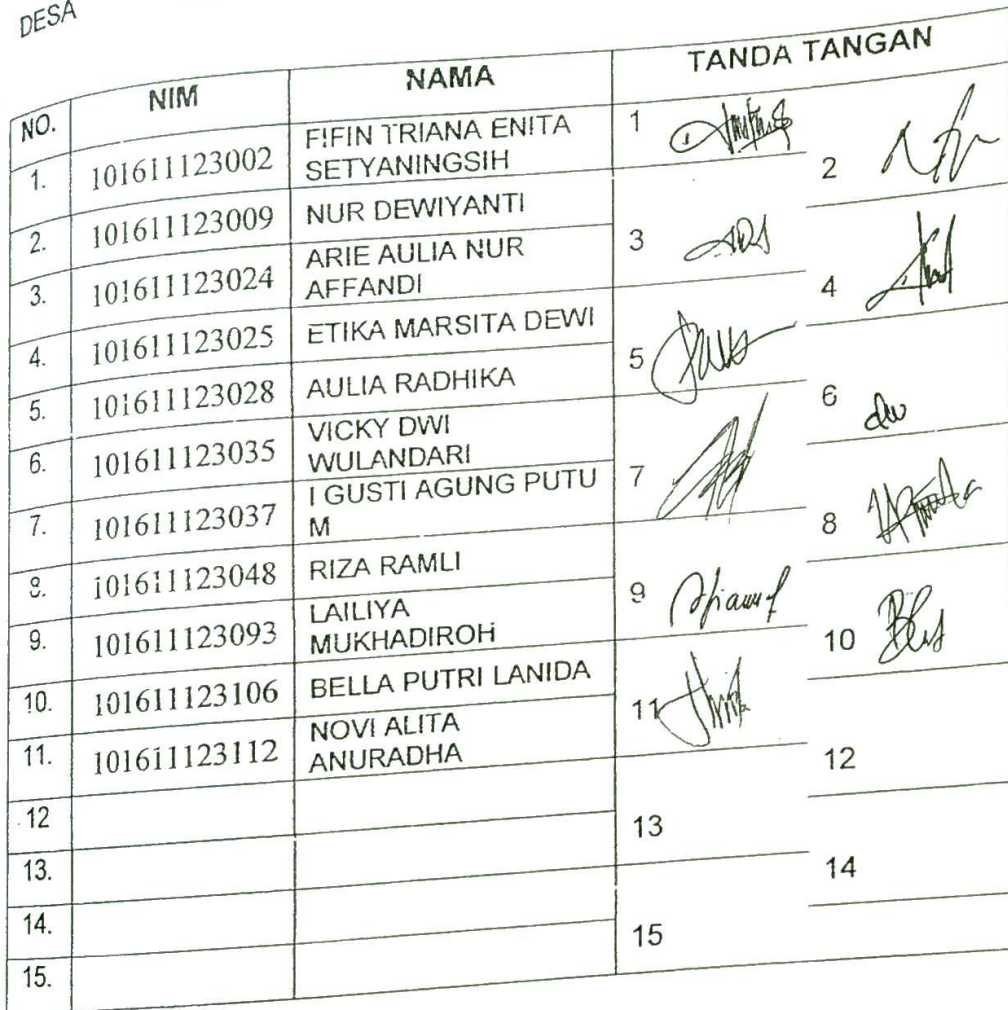 DESA
NO. NIM NAMA TANDA TANGAN
1. 101611123002 FIFIN TRIANA ENITA
SETYANINGSIH 1
2. 101611123009 NUR DEWIYANTI 2
3. 101611123024 ARIE AULIA NUR
AFFANDI 3
4. 101611123025 ETIKA MARSITA DEWI 4
5. 101611123028 AULIA RADHIKA 5
6. 101611123035 VICKY DWI
WULANDARI 6
7. 101611123037 I GUSTI AGUNG PUTU
M 7
8. 101611123048 RIZA RAMLI 8
9. 101611123093 LAILIYA
MUKHADIROH 9
10. 101611123106 BELLA PUTRI LANIDA 10
11. 101611123112 NOVI ALITA
ANURADHA 11
12 12
13. 13
14. 14
15. 15